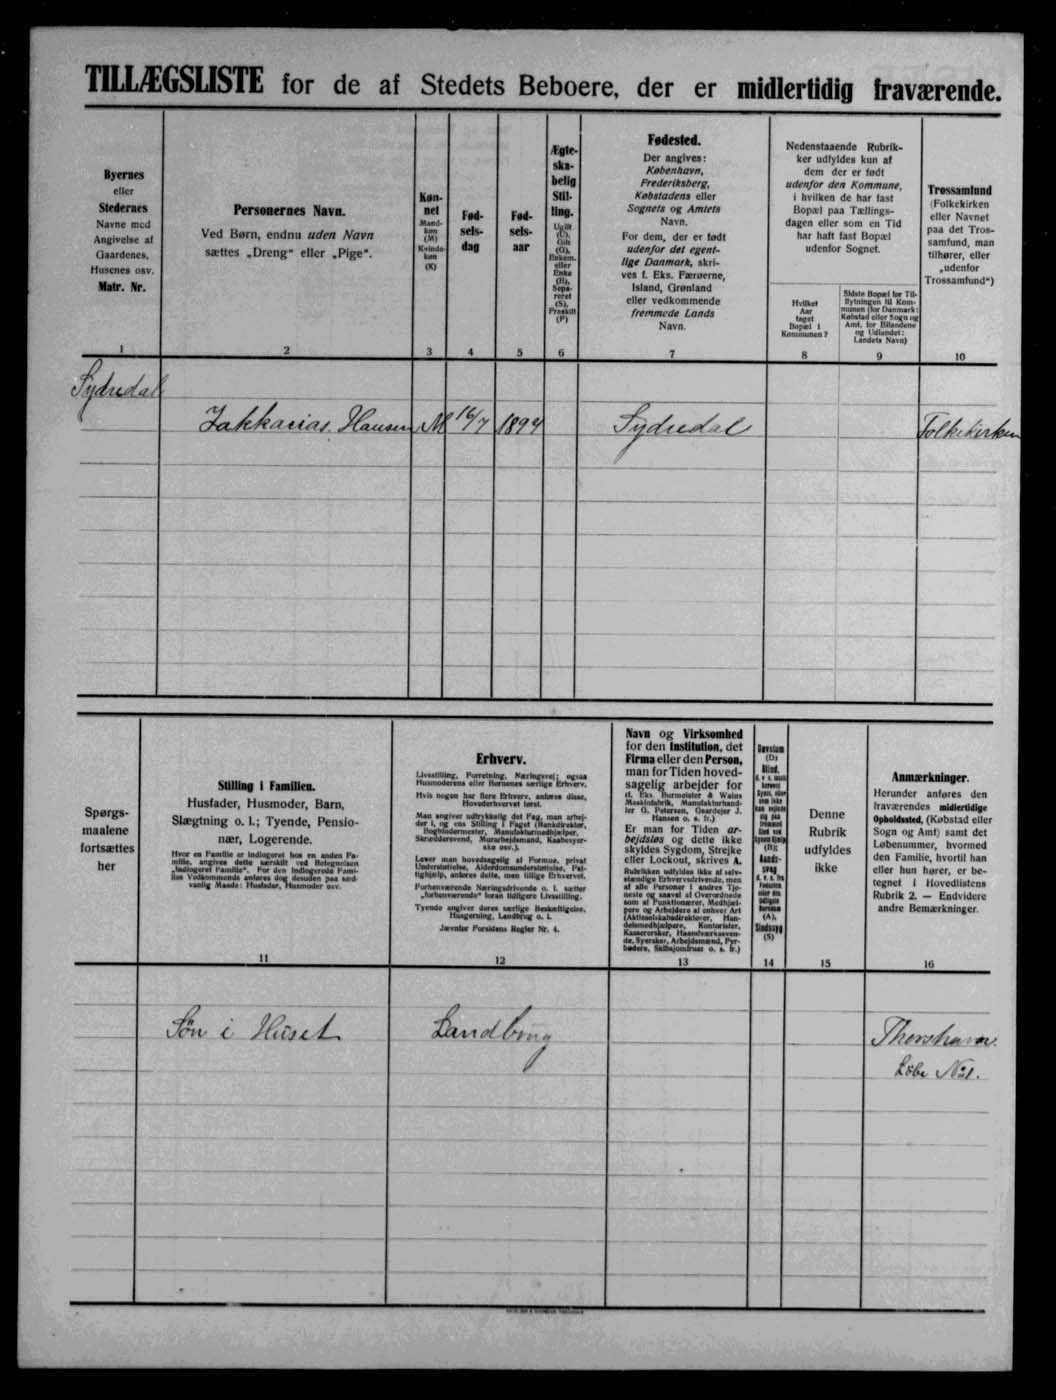 TILLÆGSLISTE for de af Stedets Beboere, der er midlertidig fraværende.
Byernes
eller
Stedernes
Navne med
Angivelse af
Gaardenes,
Husenes osv.
Matr. Nr.
1
Personernes Navn.
Ved Børn, endnu uden Navn
sættes „Dreng“ eller „Pige“.
2
Køn-
net
Mand-
køn
(M)
Kvinde-
køn
(K)
3
Fød-
sels-
dag
4
Fød-
sels-
aar
5
Ægte-
ska-
belig
Stil-
ling.
Ugift
(U),
Gift
(G),
Enkem.
eller
Enke
(E),
Sepa-
reret
(S),
Fraskilt
(F)
6
Fødested.
Der angives:
København,
Frederiksberg,
Købstadens eller
Sognets og Amtets
Navn.
For dem, der er født
udenfor det egent-
lige Danmark, skri-
ves f. Eks. Færøerne,
Island, Grønland
eller vedkommende
fremmede Lands
Navn.
7
Nedenstaaende Rubrik-
ker udfyldes kun af
dem der er født
udenfor den Kommune,
i hvilken de har fast
Bopæl paa Tællings-
dagen eller som en Tid
har haft fast Bopæl
udenfor Sognet.
Hvilket
Aar
taget
Bopæl i
Kommunen?
8
Sidste Bopæl før Til-
flytningen til Kom-
munen (for Danmark:
Købstad eller Sogn og
Amt, for Bilandene
og Udlandet:
Landets Navn)
9
Trossamfund
(Folkekirken
eller Navnet
paa det Tros-
samfund, man
tilhører, eller
„udenfor
Trossamfund“)
10
Sydredal
Zakkarias Hansen M 16/7 1894 Sydredal Folkekirken
Spørgs-
maalene
fortsættes
her
Stilling i Familien.
Husfader, Husmoder, Barn,
Slægtning o. l.; Tyende, Pensio-
nær, Logerende.
Hvor en Familie er indlogeret hos en anden Fa-
milie, angives dette særskilt ved Betegnelsen
„Indlogeret Familie“. For den indlogerede Fami-
lies Vedkommende anføres dog desuden paa sæd-
vanlig Maade: Husfader, Husmoder osv.
11
Erhverv.
Livsstilling, Forretning, Næringsvej; ogsaa
Husmoderens eller Børnenes særlige Erhverv.
Hvis nogen har flere Erhverv, anføres disse,
Hovederhvervet først.
Man angiver udtrykkelig det Fag, man arbej-
der i, og ens Stilling i Faget (Bankdirektør,
Bogbindermester, Manufakturmedhjælper,
Skræddersvend, Murarbejdsmand, Kaabesyer-
ske osv.).
Lever man hovedsagelig af Formue, privat
Understøttelse, Alderdomsunderstøttelse, Fat-
tighjælp, anføres dette, men tillige Erhvervet.
Forhenværende Næringsdrivende o. l. sætter
„forhenværende“ foran tidligere Livsstilling.
Tyende angiver deres særlige Beskæftigelse,
Husgerning, Landbrug o. l.
Jævnfør Forsidens Regler Nr. 4.
12
Navn og Virksomhed
for den Institution, det
Firma eller den Person,
man for Tiden hoved-
sagelig arbejder for
(f. Eks. Burmeister & Wains
Maskinfabrik, Manufakturhand-
ler G. Petersen, Gaardejer J.
Hansen o. s. fr.)
Er man for Tiden ar-
bejdsløs og dette ikke
skyldes Sygdom, Strejke
eller Lockout, skrives A.
Rubrikken udfyldes ikke af selv-
stændige Erhvervsdrivende, men
af alle Personer i andres Tje-
neste og saavel af Overordnede
som af Funktionærer, Medhjæl-
pere og Arbejdere af enhver Art
(Aktieselskabsdirektører, Han-
delsmedhjælpere, Kontorister,
Kassererske, Haandværkssven-
de, Syersker, Arbejdsmænd, Fyr-
bødere, Skibsjomfruer o. s. fr.)
13
Døvstum
(D)
Blind,
(B);
Aands-
svag
(A),
Sindssyg
(S)
14
Denne
Rubrik
udfyldes
ikke
15
Anmærkninger.
Herunder anføres den
fraværendes midlertidige
Opholdssted, (Købstad eller
Sogn og Amt) samt det
Løbenummer, hvormed
den Familie, hvortil han
eller hun hører, er be-
tegnet i Hovedlistens
Rubrik 2. — Endvidere
andre Bemærkninger.
16
Søn i Huset Landbrug Thorshavn.
Løbe No 1.